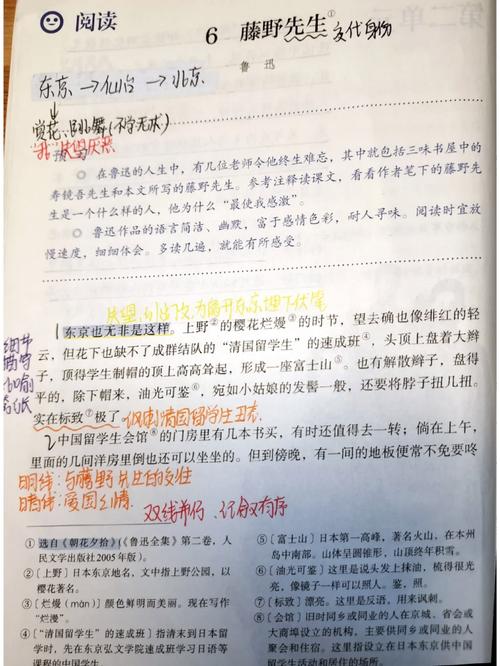 阅读
6 藤野先生① 交代身份
鲁迅
东京→仙台→北京
赏花、跳舞(不学无术)
预习
◎ 在鲁迅的人生中，有几位老师令他终生难忘，其中就包括三味书屋中的
寿镜吾先生和本文所写的藤野先生。参考注释读课文，看看作者笔下的藤野先
生是一个什么样的人，他为什么“最使我感激”。
◎ 鲁迅作品的语言简洁、幽默，富于感情色彩，耐人寻味。阅读时宜放
慢速度，细细体会。多读几遍，就能有所感受。
失望，引出下文，为离开东京埋下伏笔
1 东京也无非是这样。上野②的樱花烂熳③的时节，望去确也像绯红的轻
云，但花下也缺不了成群结队的“清国留学生”的速成班④，头顶上盘着大辫
子，顶得学生制帽的顶上高高耸起，形成一座富士山⑤。也有解散辫子，盘得
平的，除下帽来，油光可鉴⑥，宛如小姑娘的发髻一般，还要将脖子扭几扭。
实在标致⑦极了。讽刺清国留学生丑态
2 中国留学生会馆⑧的门房里有几本书买，有时还值得去一转；倘在上午，
里面的几间洋房里倒也还可以坐坐的。但到傍晚，有一间的地板便常不免要咚
明线：与藤野先生的交往
暗线：爱国之情
双线并行
① 选自《朝花夕拾》（《鲁迅全集》第二卷，人
民文学出版社2005年版）。
②〔上野〕日本东京地名，文中指上野公园，以
樱花著名。
③〔烂熳（màn）〕颜色鲜明而美丽。现在写作
“烂漫”。
④〔“清国留学生”的速成班〕指清末到日本留
学时，先在东京弘文学院速成班学习日语等
课程的中国学生
⑤〔富士山〕日本第一高峰，著名火山，在本州
岛中南部。山体呈圆锥形，山顶终年积雪。
⑥〔油光可鉴〕这里是说头发上抹油，梳得很光
亮，像镜子一样可以照人。鉴，照。
⑦〔标致〕漂亮。这里是反语，用来讽刺。
⑧〔会馆〕旧时同乡或同业的人在京城、省会或
大商埠设立的机构，主要供同乡或同业的人
聚会或寄居。这里指设立在日本东京供中国
留学生活动和居住的场所。